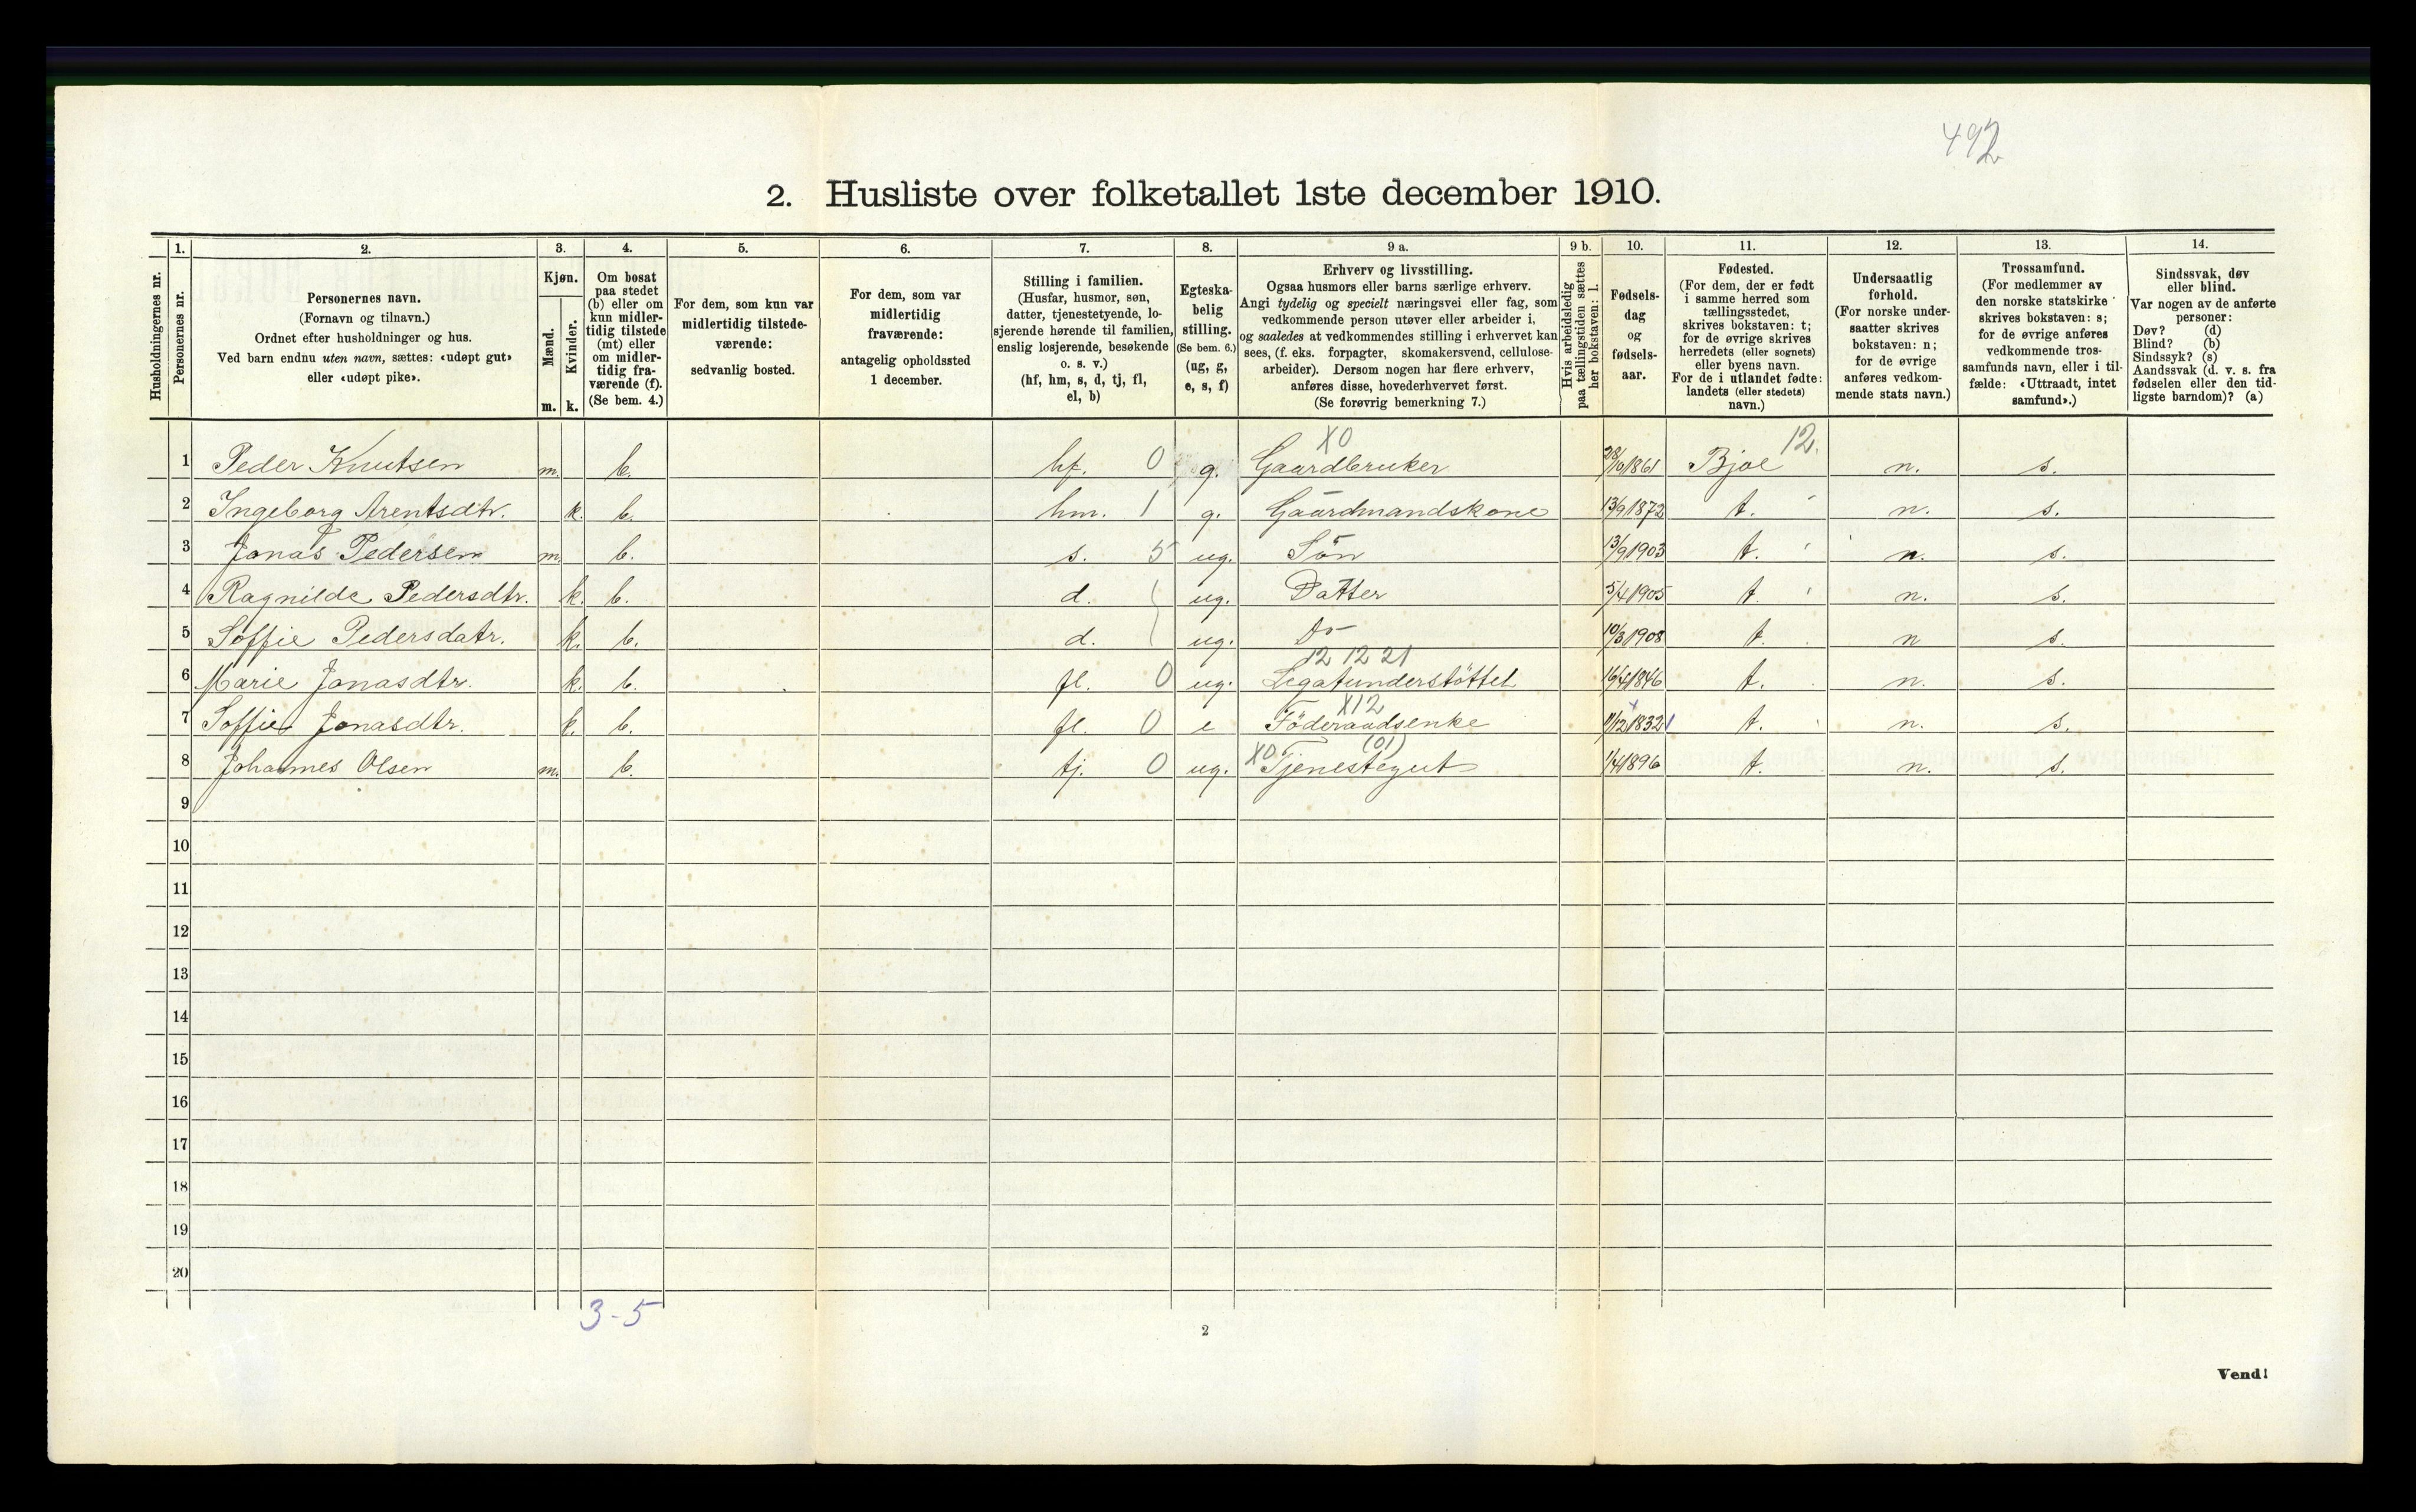 492
2. Husliste over folketallet 1ste december 1910.
Husholdningernes nr.
1.
Personernes nr.
2.
Personernes navn.
(Fornavn og tilnavn.)
Ordnet efter husholdninger og hus.
Ved barn endnu uten navn, sættes: «udøpt gut»
eller «udøpt pike».
3.
Kjøn.
Mænd.
Kvinder.
m. k.
4.
Om bosat
paa stedet
(b) eller om
kun midler-
tidig tilstede
(mt) eller
om midler-
tidig fra-
værende (f).
(Se bem. 4.)
5.
For dem, som kun var
midlertidig tilstede-
værende:
sedvanlig bosted.
6.
For dem, som var
midlertidig
fraværende:
antagelig opholdssted
1 december.
7.
Stilling i familien.
(Husfar, husmor, søn,
datter, tjenestetyende, lo-
sjerende hørende til familien,
enslig losjerende, besøkende
o. s. v.)
(hf, hm, s, d, tj, fl,
el, b)
8.
Egteska-
belig
stilling.
(Se bem. 6.)
(ug, g,
e, s, f)
9 a.
Erhverv og livsstilling.
Ogsaa husmors eller barns særlige erhverv.
Angi tydelig og specielt næringsvei eller fag, som
vedkommende person utøver eller arbeider i,
og saaledes at vedkommendes stilling i erhvervet kan
sees, (f. eks. forpagter, skomakersvend, cellulose-
arbeider). Dersom nogen har flere erhverv,
anføres disse, hovederhvervet først.
(Se forøvrig bemerkning 7.)
9 b.
Hvis arbeidsledig
paa tællingstiden sættes
her bokstaven: l.
10.
Fødsels-
dag
og
fødsels-
aar.
11.
Fødested.
(For dem, der er født
i samme herred som
tællingsstedet,
skrives bokstaven: t;
for de øvrige skrives
herredets (eller sognets)
eller byens navn.
For de i utlandet fødte:
landets (eller stedets)
navn.)
12.
Undersaatlig
forhold.
(For norske under-
saatter skrives
bokstaven: n;
for de øvrige
anføres vedkom-
mende stats navn.)
13.
Trossamfund.
(For medlemmer av
den norske statskirke
skrives bokstaven: s;
for de øvrige anføres
vedkommende tros-
samfunds navn, eller i til-
fælde: «Uttraadt, intet
samfund».)
14.
Sindssvak, døv
eller blind.
Var nogen av de anførte
personer:
Døv? (d)
Blind? (b)
Sindssyk? (s)
Aandssvak (d. v. s. fra
fødselen eller den tid-
ligste barndom)? (a)
X0 12.
1 Peder Knutsen m. b. hf. 0 g. Gaardbruker 28/10 1861 Bjoe n. s.
2 Ingeborg Arentsdtr. k. b. hm. 1 g. Gaardmandskone 13/9 1872 t. n. s.
3 Jonas Pedersen m b. s. 5 ug. Sön 13/9 1903 t. n. s.
4 Ragnilde Pedersdtr. k. b. d. ug. Datter 5/4 1905 t. n. s.
5 Soffie Pedersdatr. k. b. d. ug. Do 10/3 1908 t. n s.
12 12 21
6 Marie Jonasdtr. k. b. fl. 0 ug. Legatunderstöttet 16/4 1846 t. n. s.
X12
7 Soffie Jonasdtr. k. b. fl. 0 e Föderaadsenke 11/12 1832 t. n. s.
X0 (01)
8 Johannes Olsen m. b. tj. 0 ug. Tjenestegut 1/4 1896 t. n. s.
9
10
11
12
13
14
15
16
17
18
19
20
3-5
2
Vend!